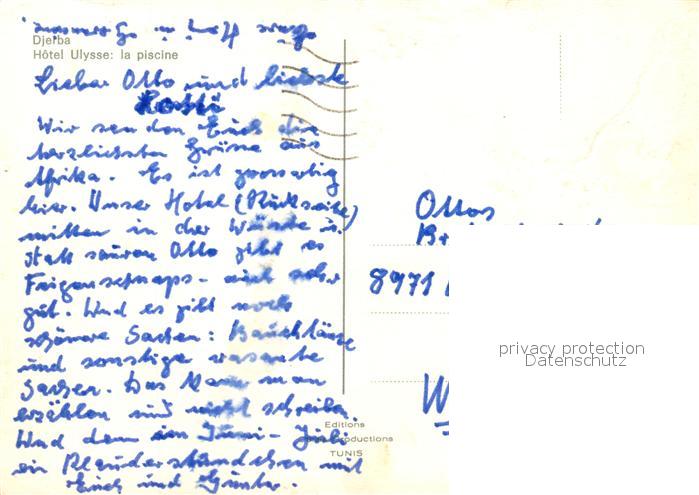 Djerba
Hôtel Ulysse: la piscine
Lieber Otto und liebste
Wir senden Euch die
herzlichsten Grüsse aus
Afrika. Es ist grossartig
hier. Unser Hotel (Rückseite)
mitten in der Wüste u.
statt sauren Otto gibt es
Feigenschnaps - auch sehr
gut. Und es gibt noch
schönere Sachen: Bauchtänze
und sonstige rasante
Sachen. Das kann man
erzählen und nicht schreiben
Und dann im Juni - Juli
ein Plauderstündchen mit
Euch und Günter.
Ottos
8971
W
Editions
Productions
TUNIS
privacy protection
Datenschutz